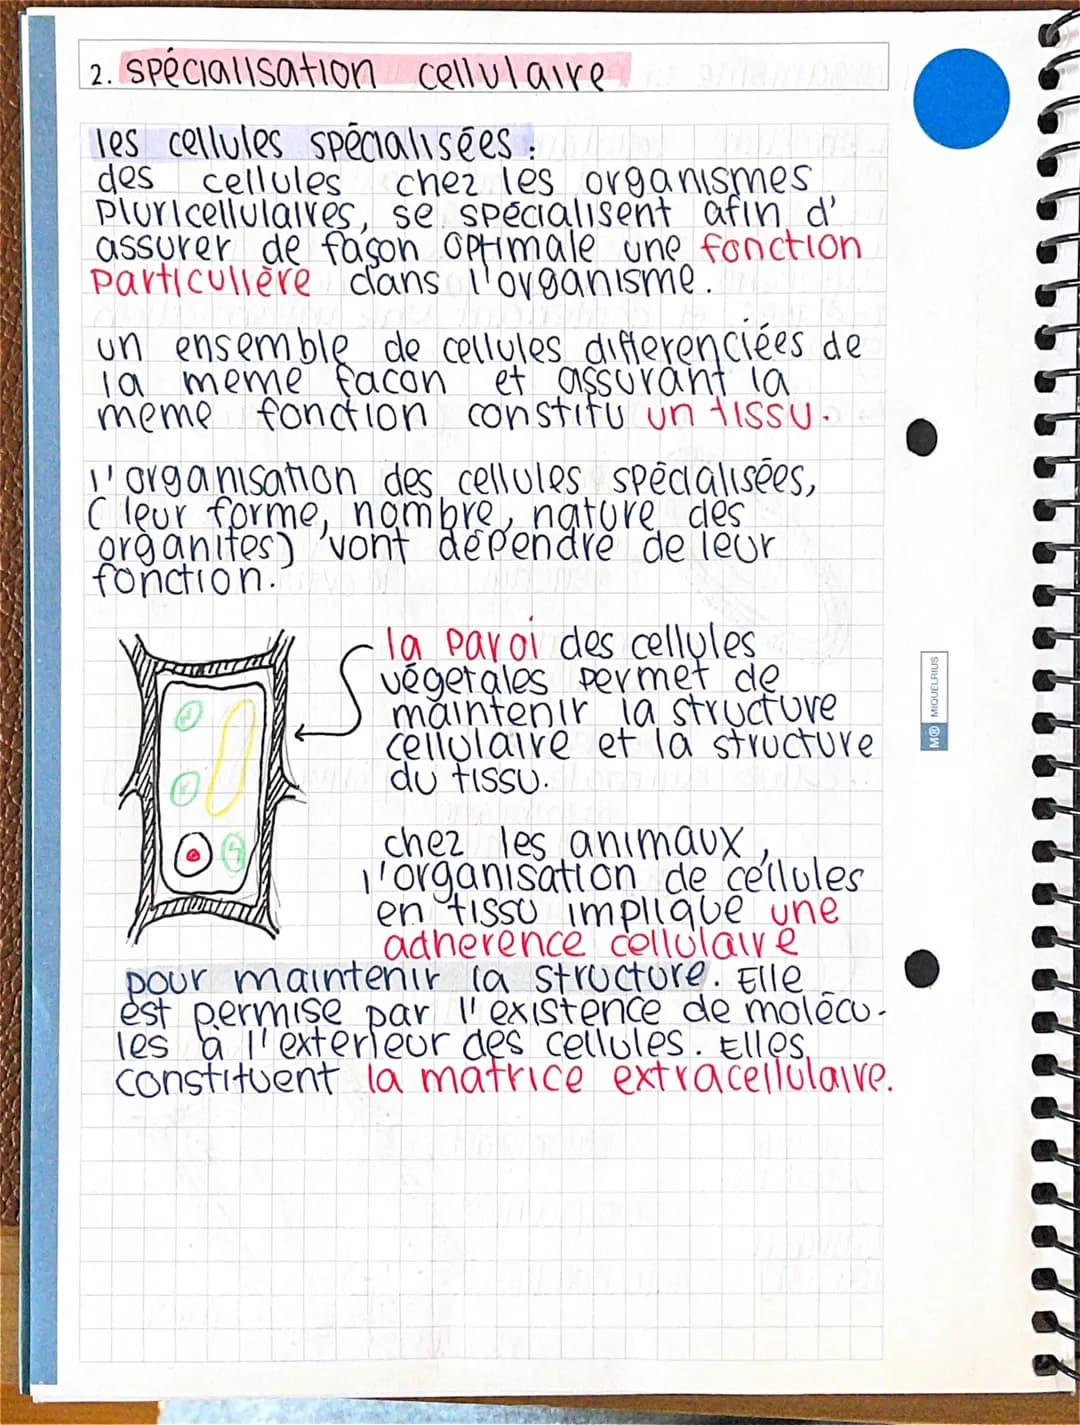 2. spécialisation cellulaire
les cellules spécialisées :
des cellules chez les organismes
pluricellulaires, se spécialisent afin d'
assurer de façon optimale une fonction
particulière dans l'organisme.
un ensemble de cellules differenciées de
la meme facon et assurant la
meme fonction constitu un tissu.
l'organisation des cellules spécialisées,
( leur forme, nombre, nature des
organites) vont dépendre de leur
fonction.
la paroi des cellules
végetales permet de
maintenir la structure
cellulaire et la structure
du tissu.
chez les animaux,
l'organisation de cellules
en tissu implique une
adherence cellulaire
pour maintenir la structure. Elle
est permise par l'existence de molécu-
les à l'exterieur des cellules. Elles
constituent la matrice extracellulaire.
M® MIQUELRIUS